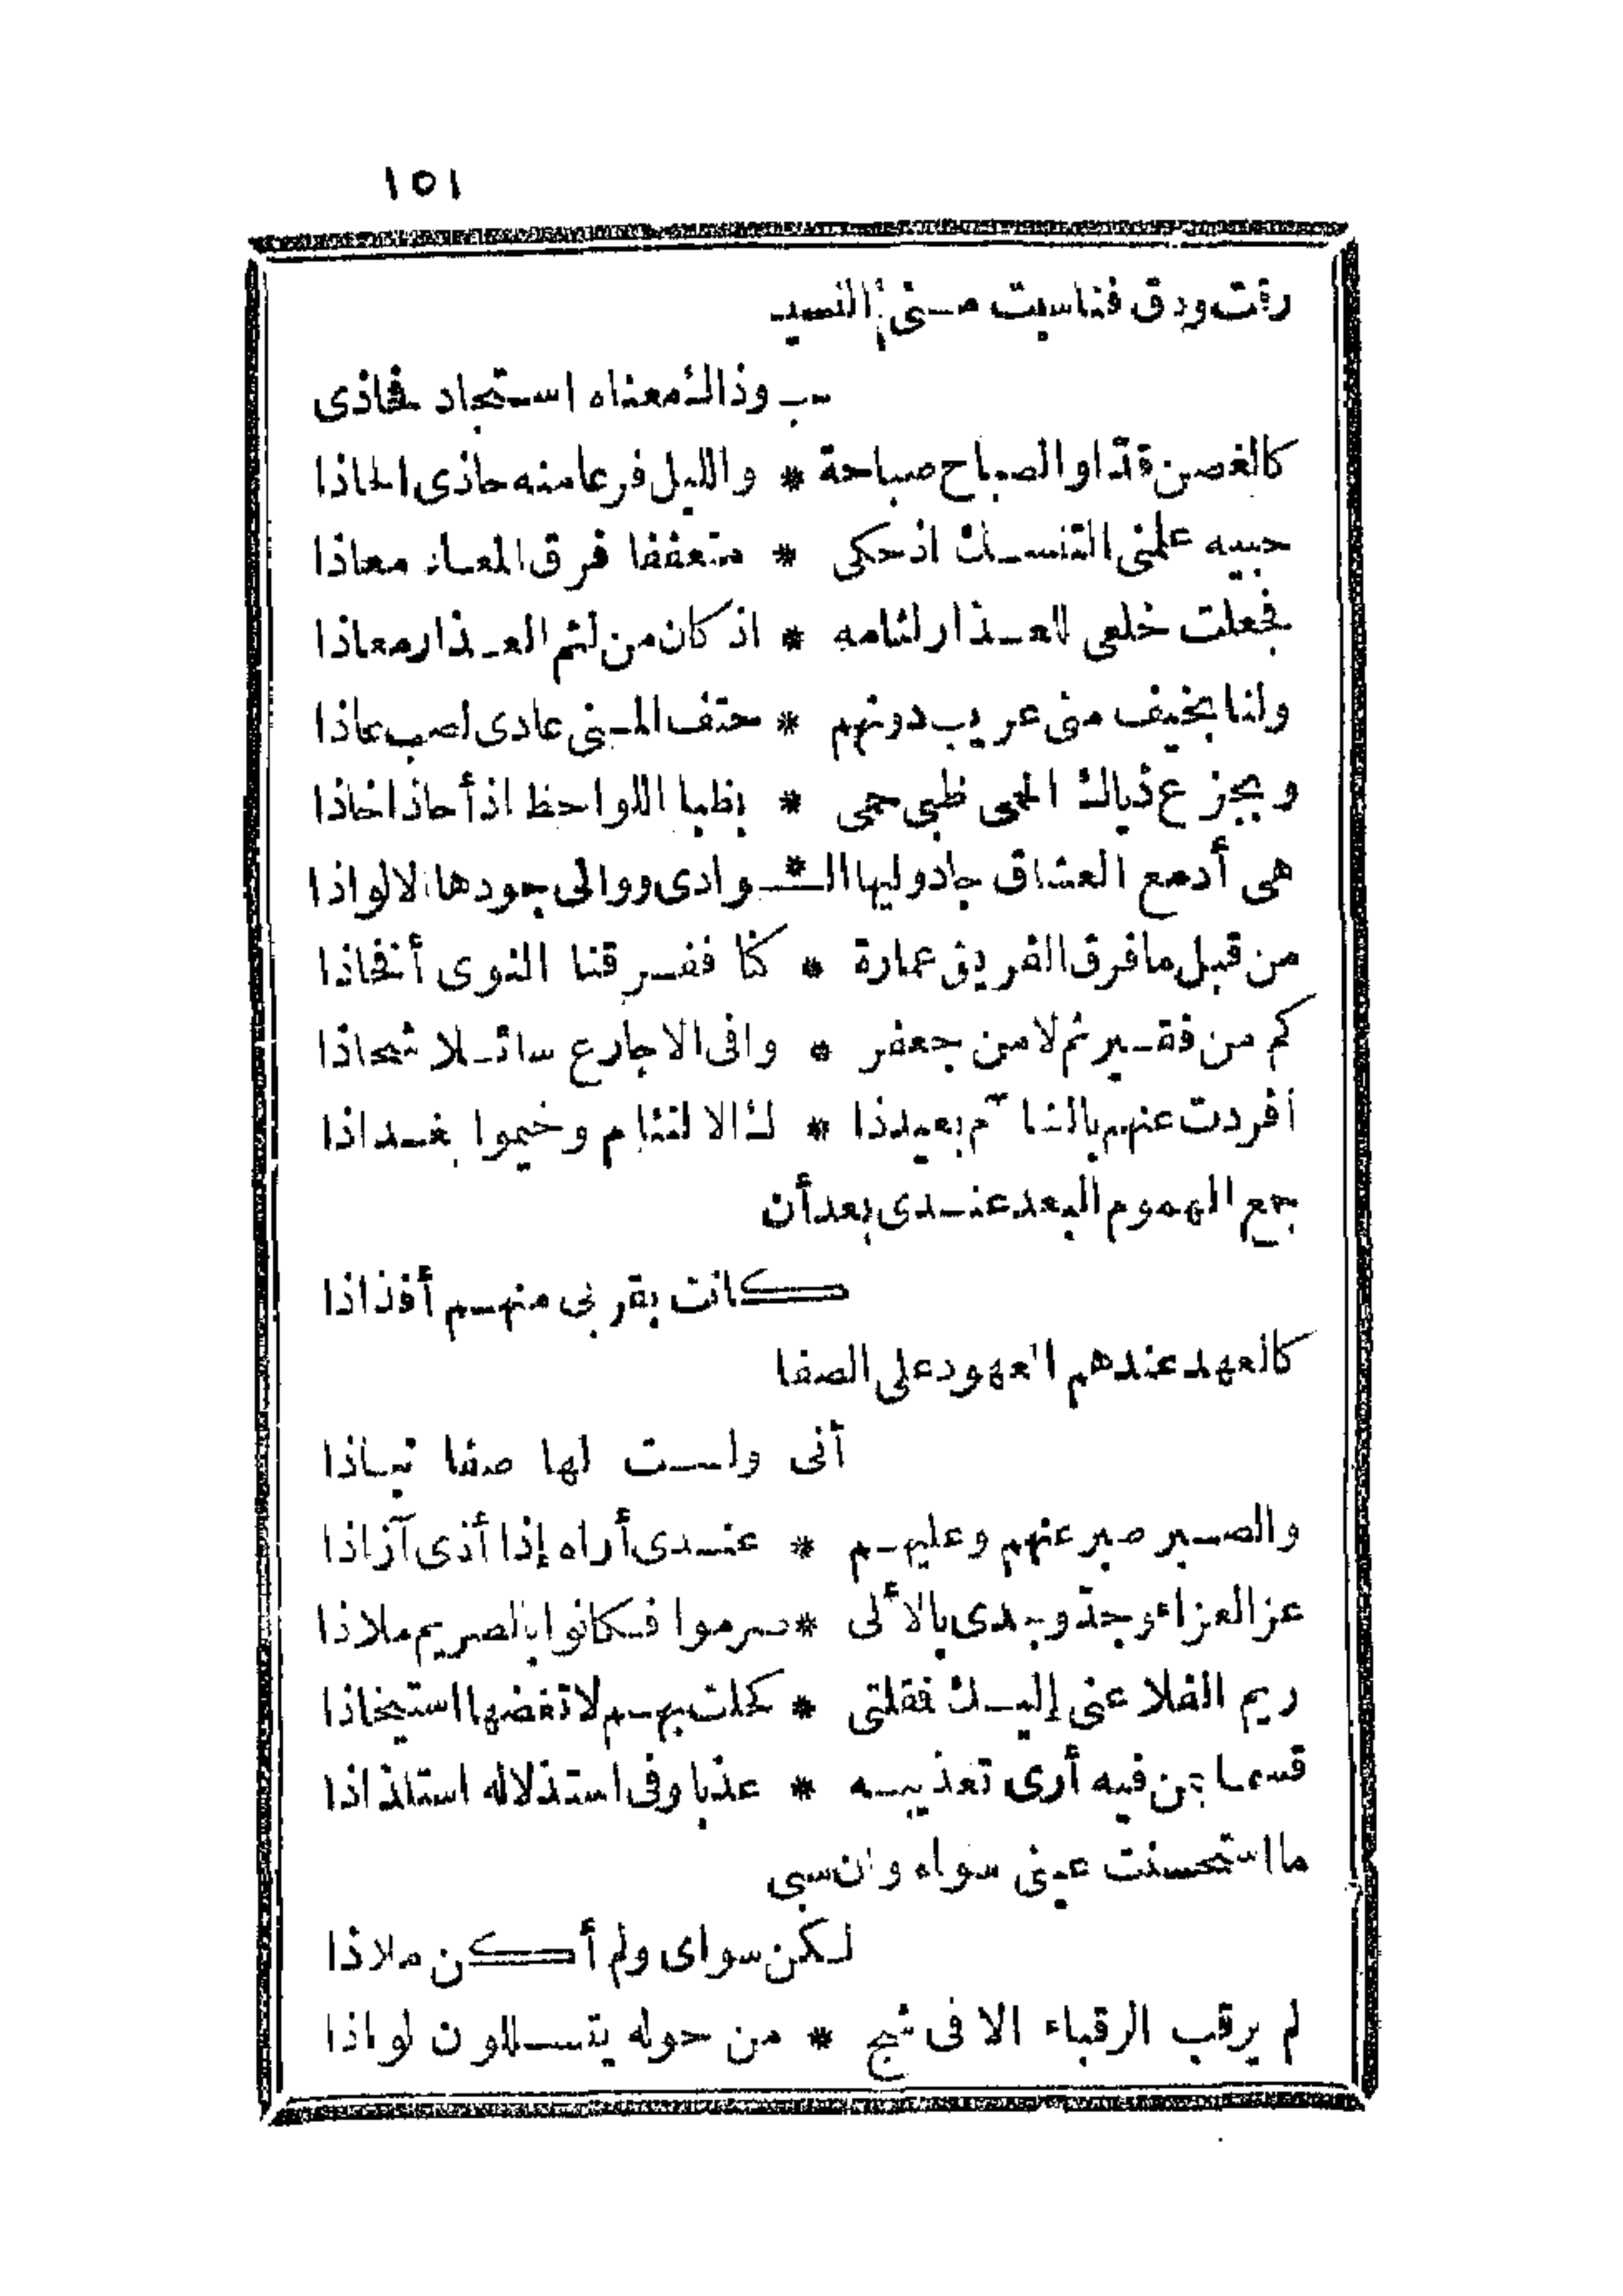 ١٥١
رقت ودق فناسبت مـنى النسيـ
ـب وذاك معناه استجاد فحاذى
كالغصن قدّا والصباح صباحة * والليل فرعا منه حاذى الحاذا
حبيه علمنى التنسك اذ حكى * متعففا فرق المعاد معاذا
فجعلت خلعى للعذار لثامه * اذ كان من لثم العذار معاذا
ولنا بخيف منى عريب دونهم * حتف المنى عادى لصب عاذا
وبجزع ذياك الحمى ظبى حمى * بظبا اللواحظ اذ أحاذ اخاذا
هى أدمع العشاق جاد وليها الـ * ـوادى ووالى جودها الالواذا
من قبل ما فرق الفريق عمارة * كنا ففرقنا النوى أفخاذا
كم من فقير ثم لا من جعفر * وافى الاجارع سائلا شحاذا
أفردت عنهم بالشآم بعيد ذا * ك الالتئام وخيموا بغداذا
جمع الهموم البعد عندى بعد أن
كانت بقربى منهم أفذاذا
كالعهد عندهم العهود على الصفا
أنى ولست لها صفا نباذا
والصبر صبر عنهم وعليهم * عندى أراه إذا أذى آزاذا
عز العزاء وجدّ وجدى بالألى * صرموا فكانوا بالصريم ملاذا
ريم الفلا عنى إليك فقلتى * كحلت بهم لا تغضها استيخاذا
قسما بمن فيه أرى تعذيبه * عذبا وفى استذلاله استلذاذا
ما استحسنت عينى سواه وان سبى
لكن سواى ولم أكن ملاذا
لم يرقب الرقباء الا فى شج * من حوله يتسللون لواذا